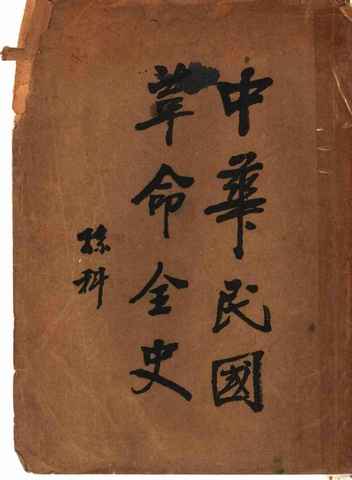 中華民國
革命全史
孫科